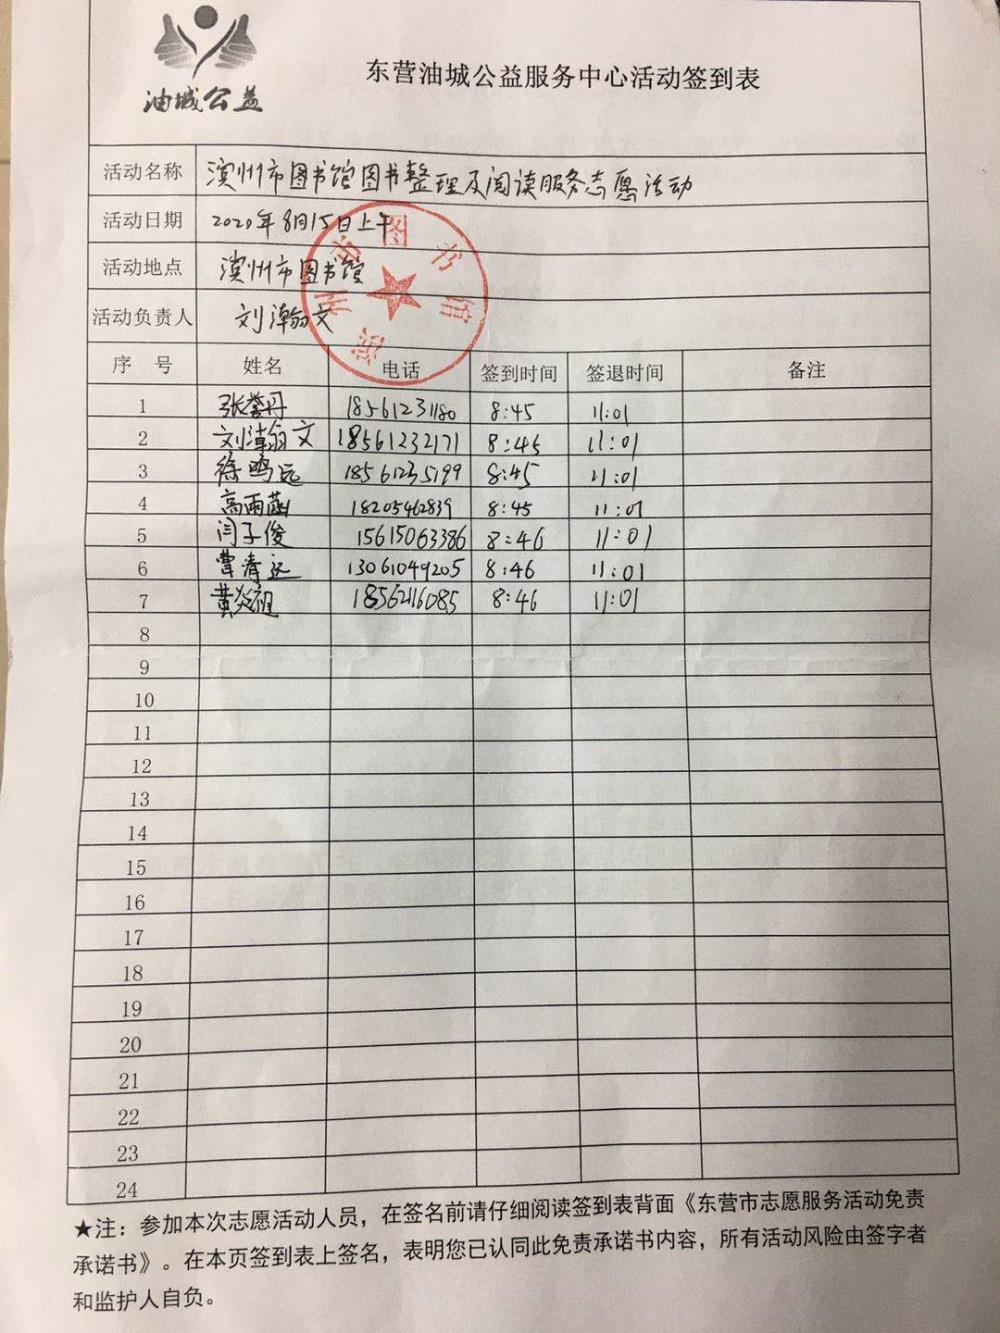 油城公益
东营油城公益服务中心活动签到表
活动名称 滨州市图书馆图书整理及阅读服务志愿活动
活动日期 2020年8月15日上午
活动地点 滨州市图书馆
活动负责人 刘瀚文
滨州市图书馆
序号 姓名 电话 签到时间 签退时间 备注
1 张誉丹 18561231180 8:45 11:01
2 刘瀚文 18561232171 8:45 11:01
3 徐鸣远 18561235199 8:45 11:01
4 高雨菡 18205462839 8:45 11:01
5 闫子俊 15615063386 8:46 11:01
6 曹清远 13061049205 8:46 11:01
7 黄炎祖 18562116085 8:46 11:01
8
9
10
11
12
13
14
15
16
17
18
19
20
21
22
23
24
★注：参加本次志愿活动人员，在签名前请仔细阅读签到表背面《东营市志愿服务活动免责
承诺书》。在本页签到表上签名，表明您已认同此免责承诺书内容，所有活动风险由签字者
和监护人自负。